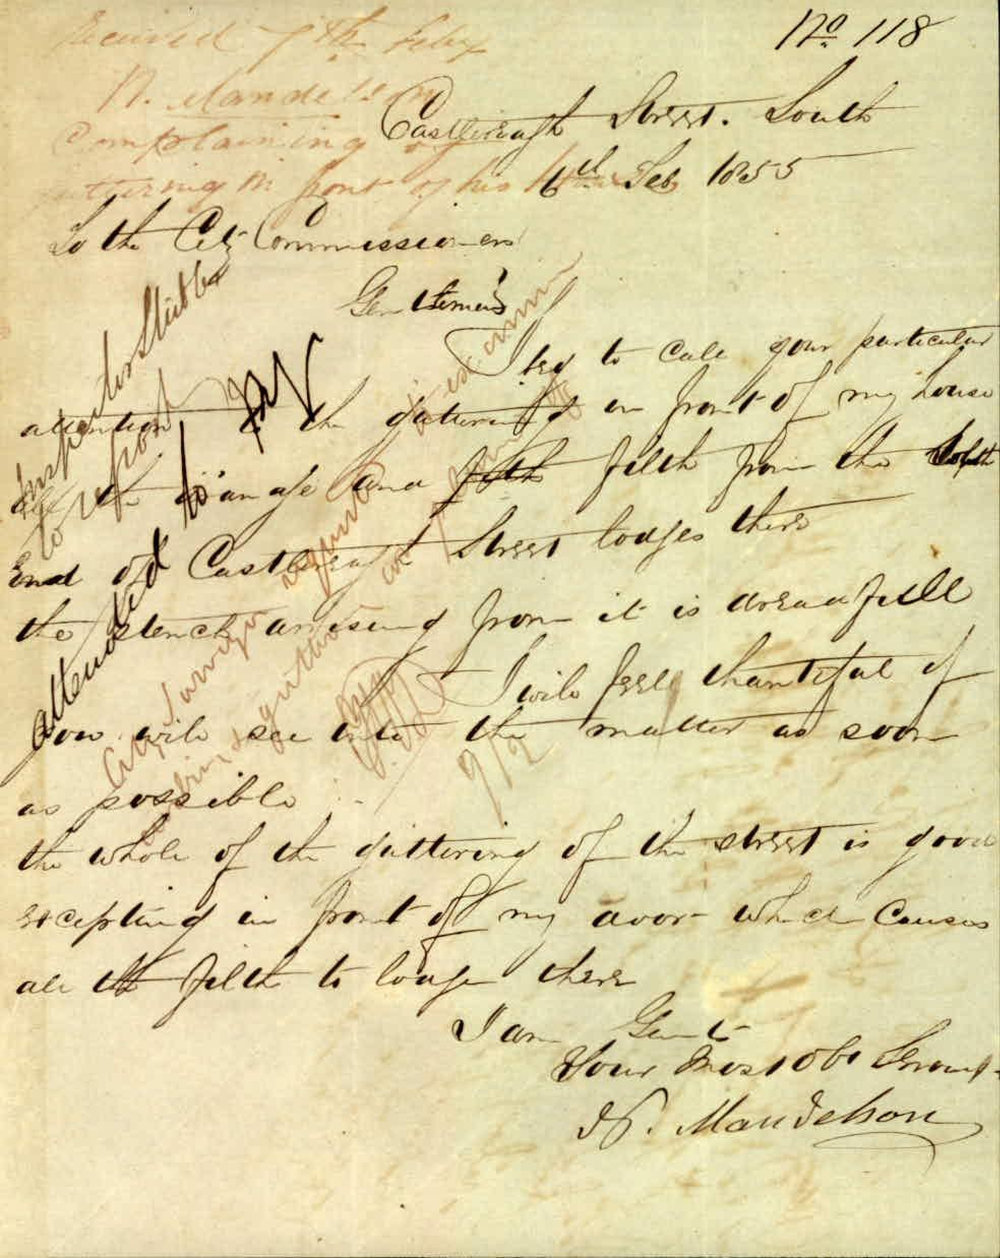 Received 7th Feby
No. 118
N. Mandelson
Complaining of
guttering in front of his House
Castlereagh Street. South
6th Feb 1855
To the City Commissioners
Gentlemen
I beg to call your particular
attention to the guttering in front of my house
all the drainage and filth from the South
End of Castlereagh Street lodges there
the stench arriseing from it is dreadfull
I will feell thankful if
you will see into the matter as soon
as possible
the whole of the guttering of the street is good
excepting in front of my door which causes
all the filth to lodge there
I am Gent
Your Most Obt Servant
N. Mandelson
Inspector Stubbs
to report
attended to
City Surveyor
9/2